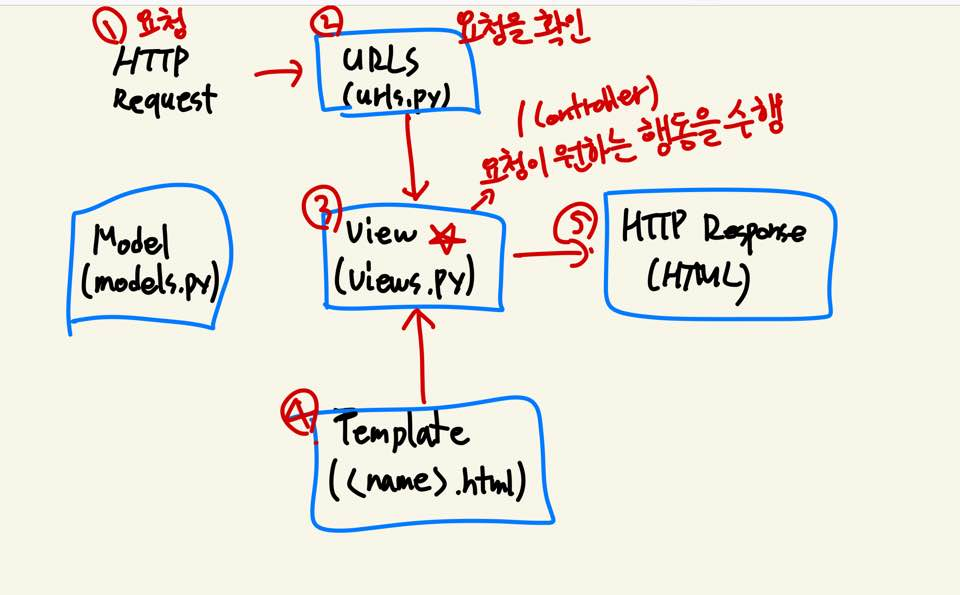 ① 요청
HTTP
Request
②
URLS
(urls.py)
요청을 확인
(Controller)
요청이 원하는 행동을 수행
Model
(models.py)
③
View
(views.py)
⑤
HTTP Response
(HTML)
④
Template
(<name>.html)